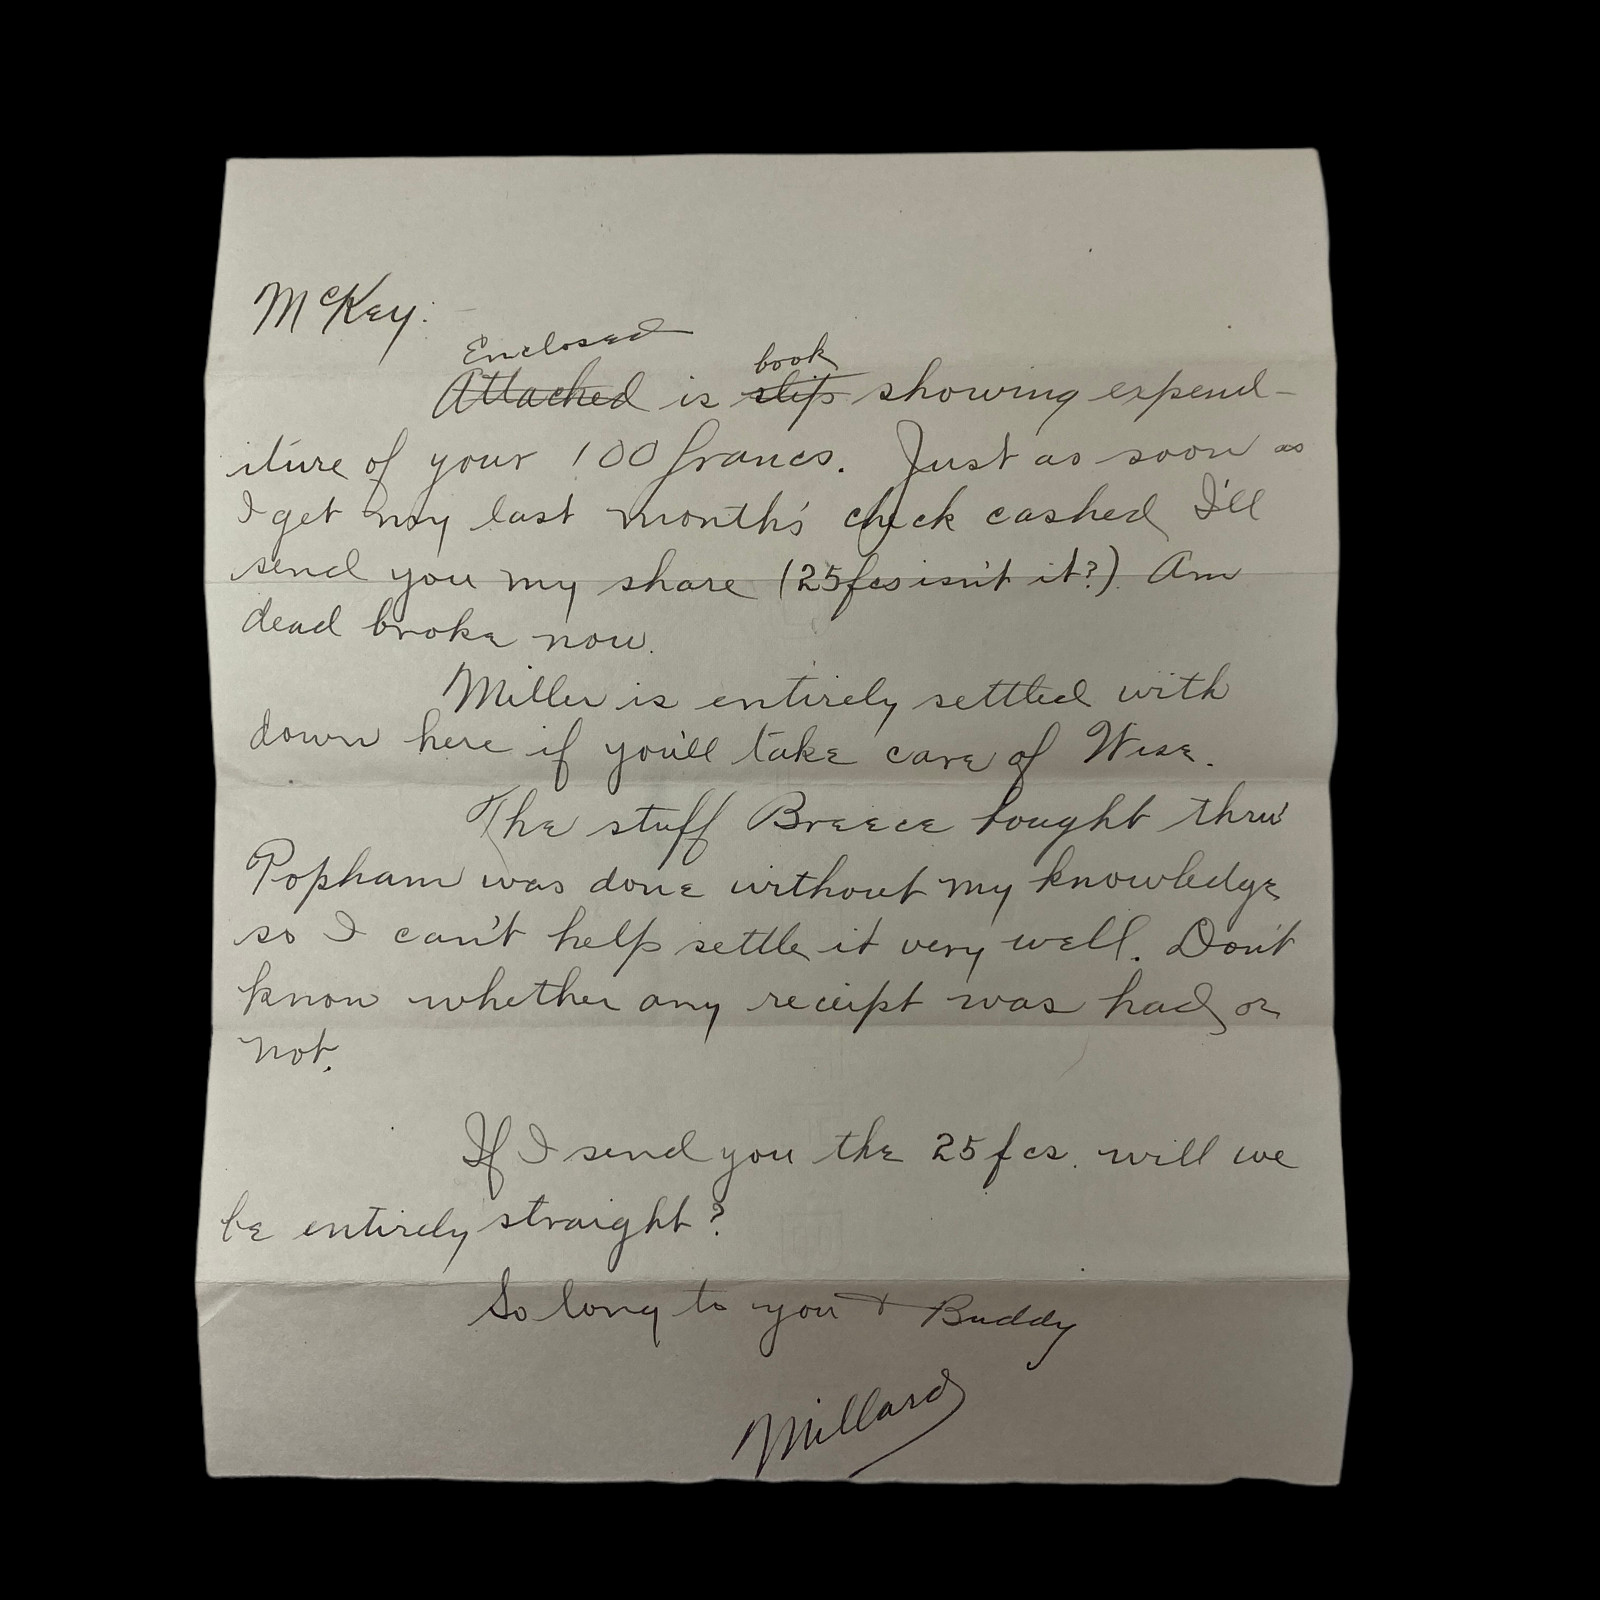 McKey:
Enclosed book
Attached is slip showing expend-
iture of your 100 francs. Just as soon as
I get my last month's check cashed I'll
send you my share (25fcs isn't it?). Am
dead broke now.
Miller is entirely settled with
down here if you'll take care of Wise.
The stuff Breece bought thru'
Popham was done without my knowledge
so I can't help settle it very well. Don't
know whether any receipt was had or
not.
If I send you the 25 fcs. will we
be entirely straight?
So long to you + Buddy
Millard